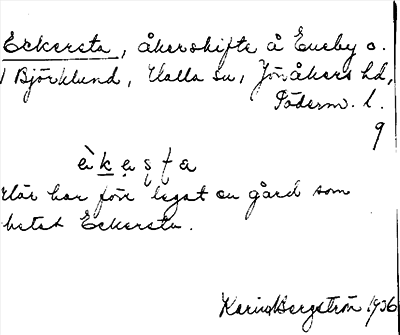 Eckersta, åkerskifte å Eneby o.
Björklund, Halla sn, Jönåkers hd,
Söderm. l.
9
èkas̥ta
Här har förr legat en gård som
hetat Eckersta.
Karin Bergström 1936